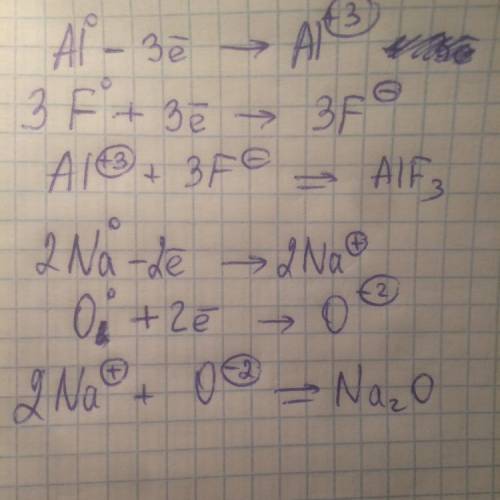 Al⁰ - 3ē → Al⁺³
3F⁰ + 3ē → 3F⁻
Al⁺³ + 3F⁻ = AlF₃
2Na⁰ - 2ē → 2Na⁺
O⁰ + 2ē → O⁻²
2Na⁺ + O⁻² = Na₂O